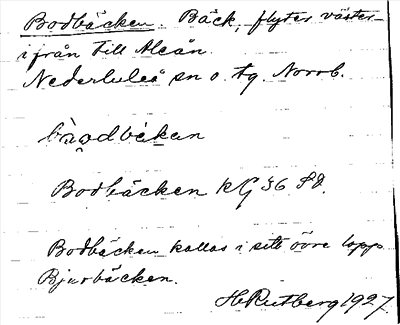 Bodbäcken. Bäck, flyter väster-
ifrån till Aleån.
Nederluleå sn o. tg. Norrb.
bà̠o̠dbèkan
Bodbäcken kG 36 SO.
Bodbäcken kallas i sitt övre lopp
Bjurbäcken.
H Rutberg 1927.